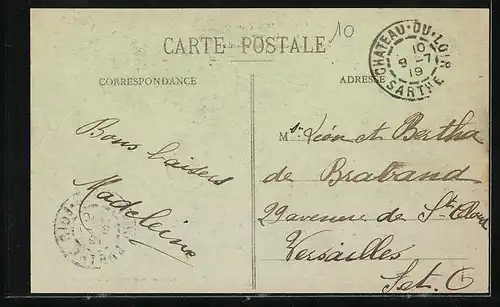 10
CARTE POSTALE
CORRESPONDANCE
ADRESSE
CHATEAU-DU-LOIR
10
9-7
19
SARTHE
Bons baisers
Madeleine
Mrs. Léon et Bertha
de Braband
29 avenue de St Cloud
Versailles
Set. O